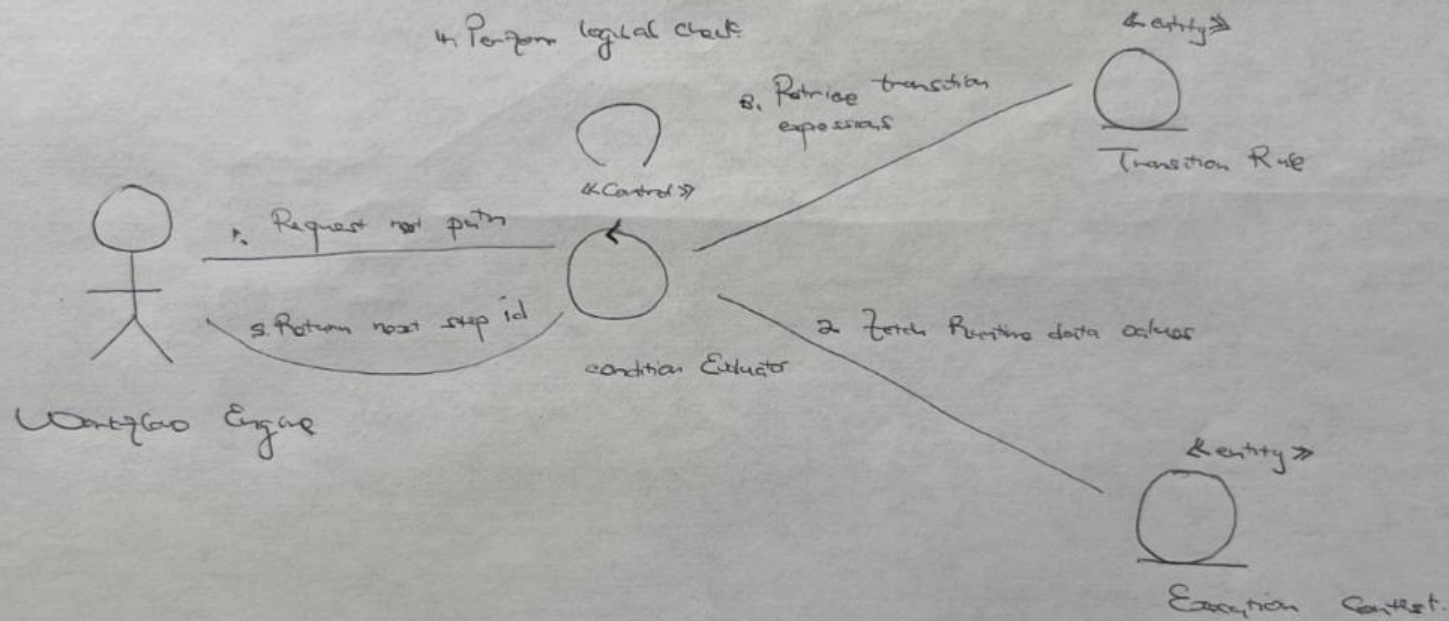 4. Perform logical check
<<entity>>
3. Retrieve transition
expressions
Transition Rule
<<Control>>
1. Request next path
5. Return next step id
2. Fetch Runtime data values
condition Evaluator
Workflow Engine
<<entity>>
Execution Context.